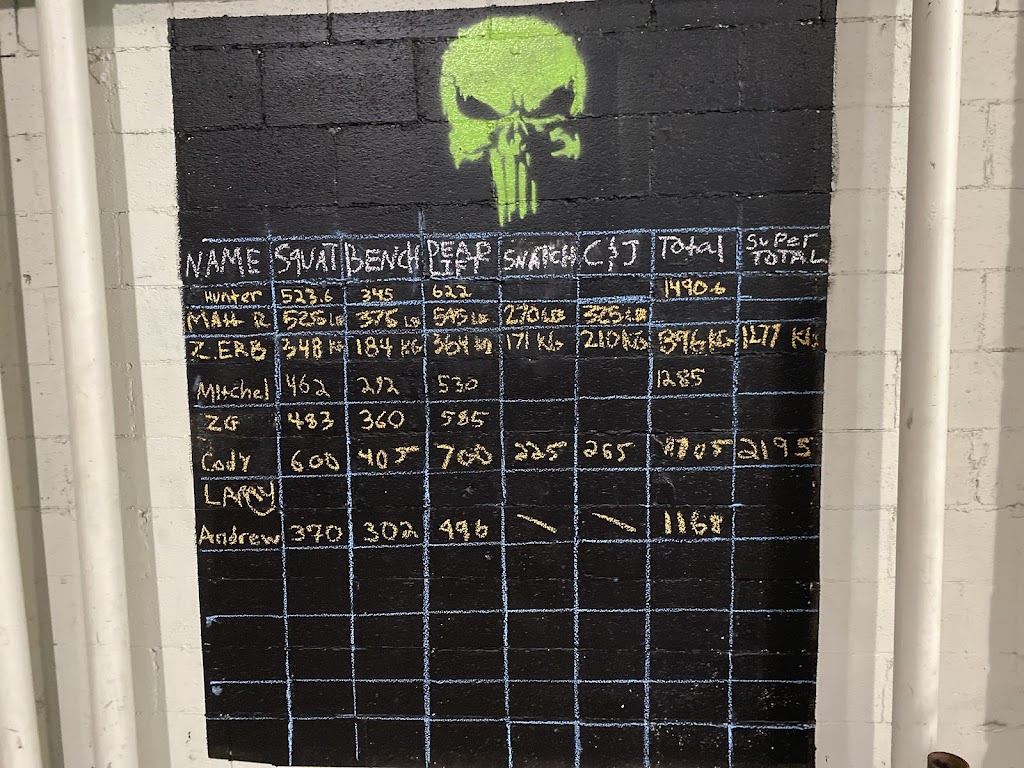 NAME SQUAT BENCH DEAD LIFT SNATCH C&J Total SUPER TOTAL
Hunter 523.6 345 622 1490.6
MAtt R 525 LB 375 LB 545 LB 270 LB 325 LB
Z.ERB 348 KG 184 KG 364 KG 171 KG 210 KG 896 KG 1277 KG
Mitchel 462 292 530 1285
ZG 483 360 585
Cody 600 405 700 225 265 1705 2195
LARRY
Andrew 370 302 496 \ \ 1168